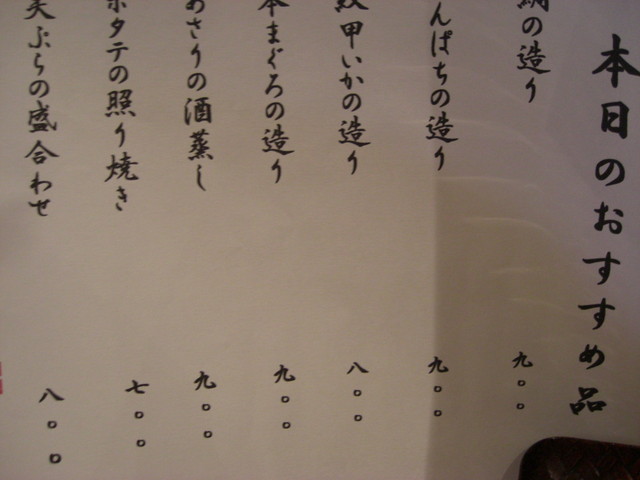 本日のおすすめ品
鯛の造り 九〇〇
んぱちの造り 九〇〇
紋甲いかの造り 八〇〇
本まぐろの造り 九〇〇
あさりの酒蒸し 九〇〇
ホタテの照り焼き 七〇〇
天ぷらの盛合わせ 八〇〇